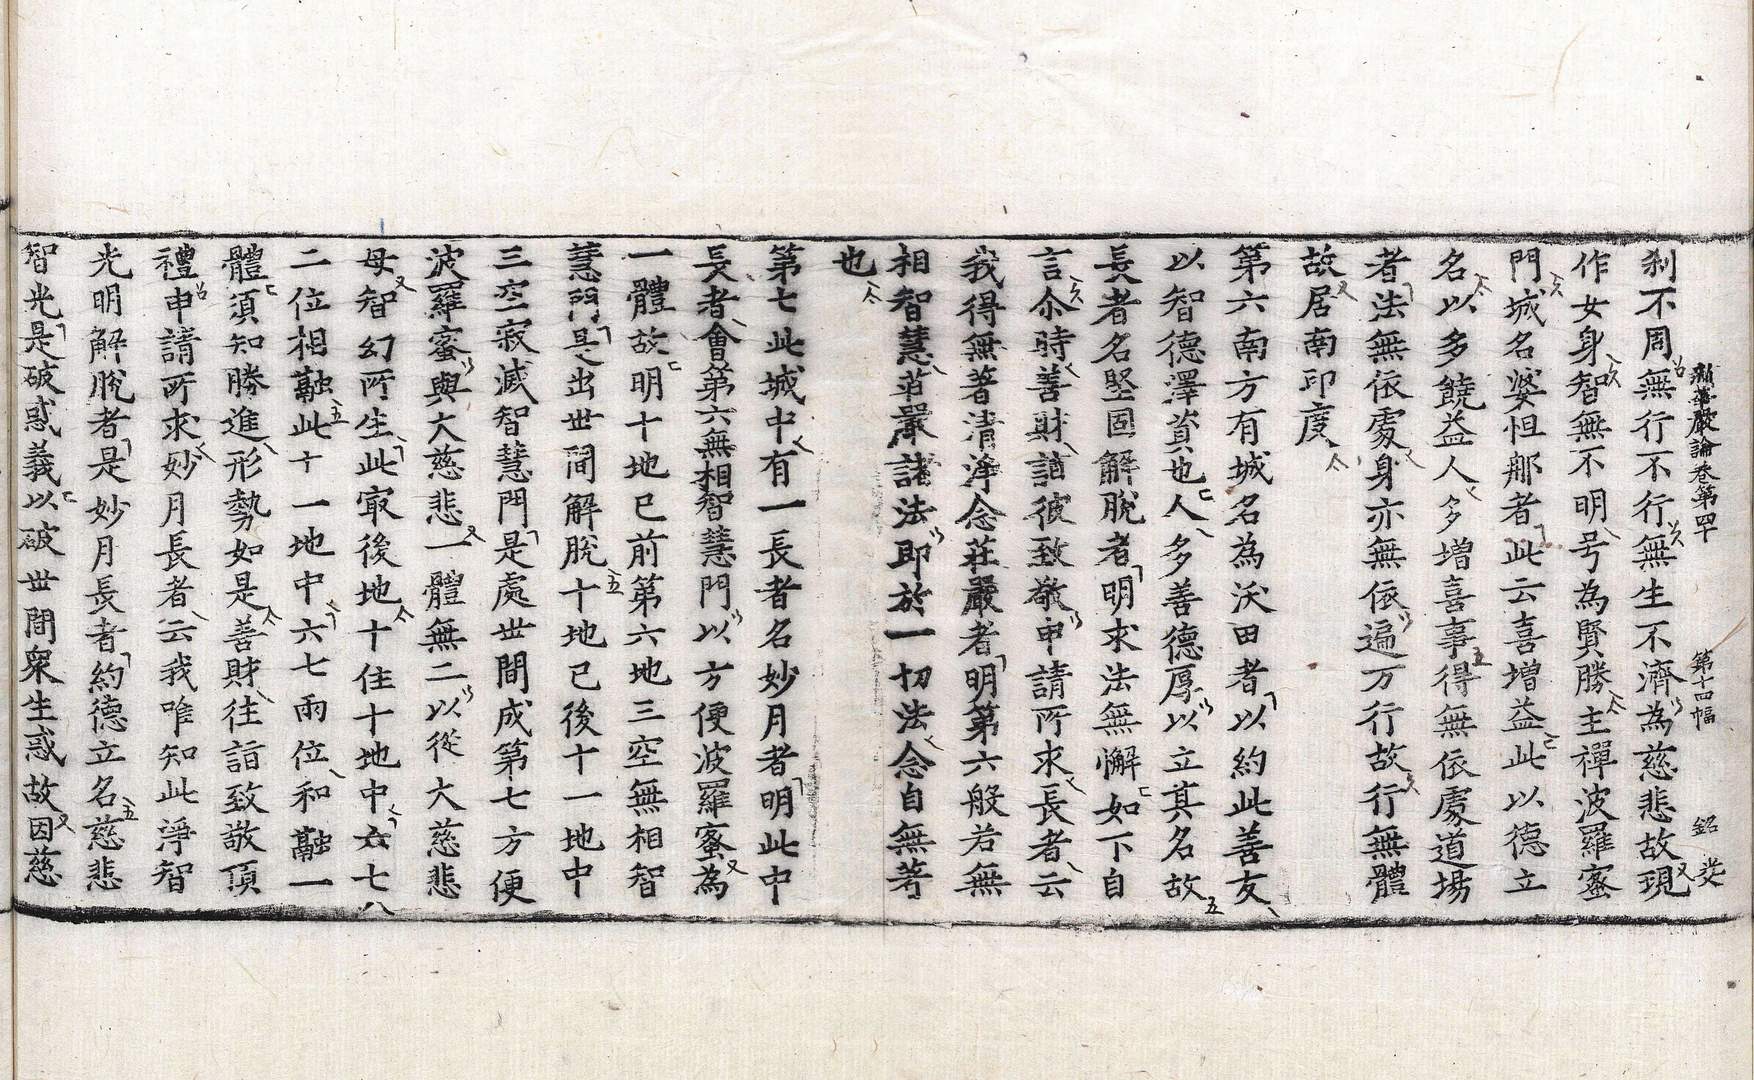 新華嚴論卷第四十 第十四幅 銘 𤇆
刹不周無行不行無生不濟為慈悲故現
作女身智無不明号為賢勝主禪波羅蜜
門城名婆怛那者此云喜增益此以德立
名以多饒益人多增喜事得無依處道場
者法無依處身亦無依遍万行故行無體
故居南印度
第六南方有城名為沃田者以約此善友
以智德澤資也人多善德厚以立其名故
長者名堅固解脫者明求法無懈如下自
言尒時善財詣彼致敬申請所求長者云
我得無著清淨念莊嚴者明第六般若無
相智慧莊嚴諸法即於一切法念自無著
也
第七此城中有一長者名妙月者明此中
長者會第六無相智慧門以方便波羅蜜為
一體故明十地已前第六地三空無相智
慧門是出世間解脫十地已後十一地中
三空寂滅智慧門是處世間成第七方便
波羅蜜與大慈悲一體無二以從大慈悲
母智幻所生此㝡後地十住十地中六七八
二位相融此十一地中六七兩位和融一
體須知勝進形勢如是善財往詣致敬頂
禮申請所求妙月長者云我唯知此淨智
光明解脫者是妙月長者約德立名慈悲
智光是破惑義以破世間衆生惑故因慈